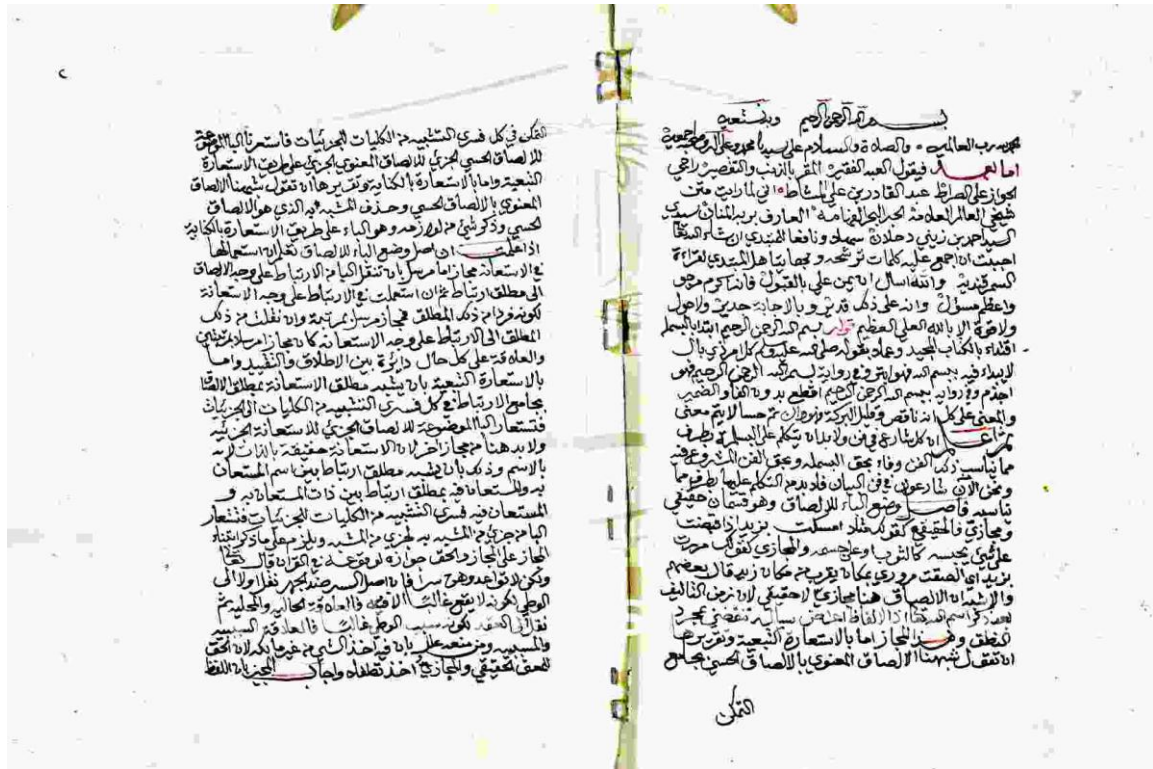 بسم الله الرحمن الرحيم وبه نستعين
الحمد لله رب العالمين والصلاة والسلام على سيدنا محمد وعلى اله وصحبه اجمعين
اما بعد فيقول العبد الفقير المقر بالذنب والتقصير راجي
الجواز على الصراط عبد القادر بن علي المشاط اني لما رايت متن
شيخي العالم العلامة الحبر البحر الفهامة العارف بربه المنان سيدي
السيد احمد بن زيني دحلان سهلا ونافعا للمبتدي ان شاء الله تعالى
احببت ان اجمع عليه كلمات توشحه وبها يتاهل المبتدي لقراءة
السمرقندية والله اسال ان يمن علي بالقبول فانه اكرم مرجو
واعظم مسؤل وانه على ذلك قدير وبالاجابة جدير ولا حول
ولا قوة الا بالله العلي العظيم قوله بسم الله الرحمن الرحيم ابتدا بالبسملة
اقتداء بالكتاب المجيد وعملا بقوله صلى الله عليه وسلم كل امر ذي بال
لا يبداء فيه ببسم الله فهو ابتر وفي رواية بسم الله الرحمن الرحيم فهو
اجذم وفي رواية ببسم الله الرحمن الرحيم اقطع بدون الفا والضمير
والمعنى على كل انه ناقص وقليل البركة وهو وان تم حسا لا يتم معنى
ثم اعلم ان كل شارع في فن لا بد ان يتكلم على البسملة بطرف
مما يناسب ذلك الفن وفاء بحق البسملة وبحق الفن المشروع فيه
ونحن الآن شارعون في فن البيان فلا بد من التكلم عليها بطرف مما
يناسبه فاصل وضع الباء للالصاق وهو قسمان حقيقي
ومجازي فالحقيقي كقولك مثلا امسكت بزيد اذا قبضت
على شيء يحبسه كالثوب وعلى جسمه والمجازي كقولك مررت
بزيد اي الصقت مروري بمكان يقرب من مكان زيد قال بعضهم
والاشبه ان الالصاق هنا مجازي لا حقيقي لان زمن التاليف
بعد ذكر اسم الله تعالى اذ الالفاظ اعراض سيالة تنقضي بمجرد
النطق وهذا المجاز اما بالاستعارة التبعية وتقريرها
ان تقول شبهنا الالصاق المعنوي بالالصاق الحسي بجامع
التمكن
٢
التمكن في كل فسرى التشبيه من الكليات للجزئيات فاستعرنا الباء الموضوعة
للالصاق الحسي الجزئي للالصاق المعنوي الجزئي على طريق الاستعارة
التبعية واما بالاستعارة بالكناية وتقريرها ان تقول شبهنا الالصاق
المعنوي بالالصاق الحسي وحذف المشبه به الذي هو الالصاق
الحسي وذكر شيء من لوازمه وهو الباء على طريق الاستعارة بالكناية
اذا علمت ان اصل وضع الباء للالصاق تعلم ان استعمالها
في الاستعانة مجاز اما مرسل بان تنقل الباء من الارتباط على وجه الالصاق
الى مطلق ارتباط ثم ان استعملت في الارتباط على وجه الاستعانة
لكونه فردا من ذلك المطلق فمجاز مرسل بمرتبة وان نقلت من ذلك
المطلق الى الارتباط على وجه الاستعانة كان مجازا مرسلا بمرتبتين
والعلاقة على كل حال دائرة بين الاطلاق والتقييد واما
بالاستعارة التبعية بان يشبه مطلق الاستعانة بمطلق الالصاق
بجامع الارتباط في كل فسرى التشبيه من الكليات الى الجزئيات
فتستعار الباء الموضوعة للالصاق الجزئي للاستعانة الجزئية
ولا بد هنا من مجاز اخر لان الاستعانة حقيقة بالذات لا
بالاسم وذلك بان يشبه مطلق ارتباط بين اسم المستعان
به والمستعان فيه بمطلق ارتباط بين ذات المستعان به و
المستعان فيه فسرى التشبيه من الكليات للجزئيات فتستعار
الباء من جزئي من المشبه به لجزئي من المشبه ويلزم على ما ذكر ابتناء
المجاز على المجاز والحق جوازه لوقوعه في القرآن قال تعالى
ولكن لا تواعدوهن سرا فان اصل السر ضد الجهر نقل اولا الى
الوطي لكونه لا يقع غالبا الا فيه فالعلاقة الحالية والمحلية ثم
نقل الى العقد لكونه سبب الوطي غالبا فالعلاقة السببية
والمسببية ومن منعه علل بان فيه اخذ الشيء من غير مالكه لان الحق
للمعنى الحقيقي والمجازي اخذ تطفلا واجاب المجيز بان اللفظ